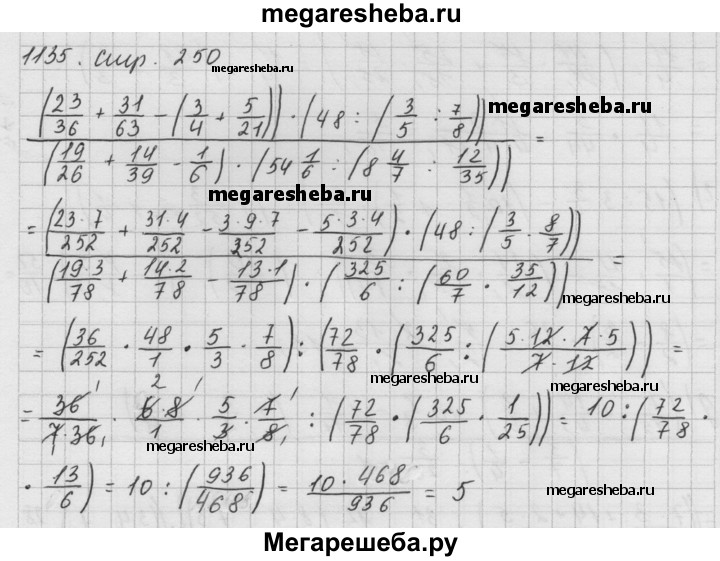 megaresheba.ru
1135. стр. 250
megaresheba.ru
(23/36 + 31/63 − (3/4 + 5/21)) · (48 : (3/5 : 7/8))
megaresheba.ru
=
(19/26 + 14/39 − 1/6) · (54 1/6 : (8 4/7 : 12/35))
megaresheba.ru
= (23·7/252 + 31·4/252 − 3·9·7/252 − 5·3·4/252) · (48 : (3/5 · 8/7))
=
(19·3/78 + 14·2/78 − 13·1/78) · (325/6 : (60/7 · 35/12))
megaresheba.ru
= (36/252 · 48/1 · 5/3 · 7/8) : (72/78 · (325/6 : (5·12·7·5/7·12))) =
megaresheba.ru
= 36/7·36 · 6·8/1 · 5/3 · 7/8 : (72/78 · (325/6 · 1/25)) = 10 : (72/78 ·
megaresheba.ru
· 13/6) = 10 : (936/468) = 10·468/936 = 5
megaresheba.ru
Мегарешеба.ру